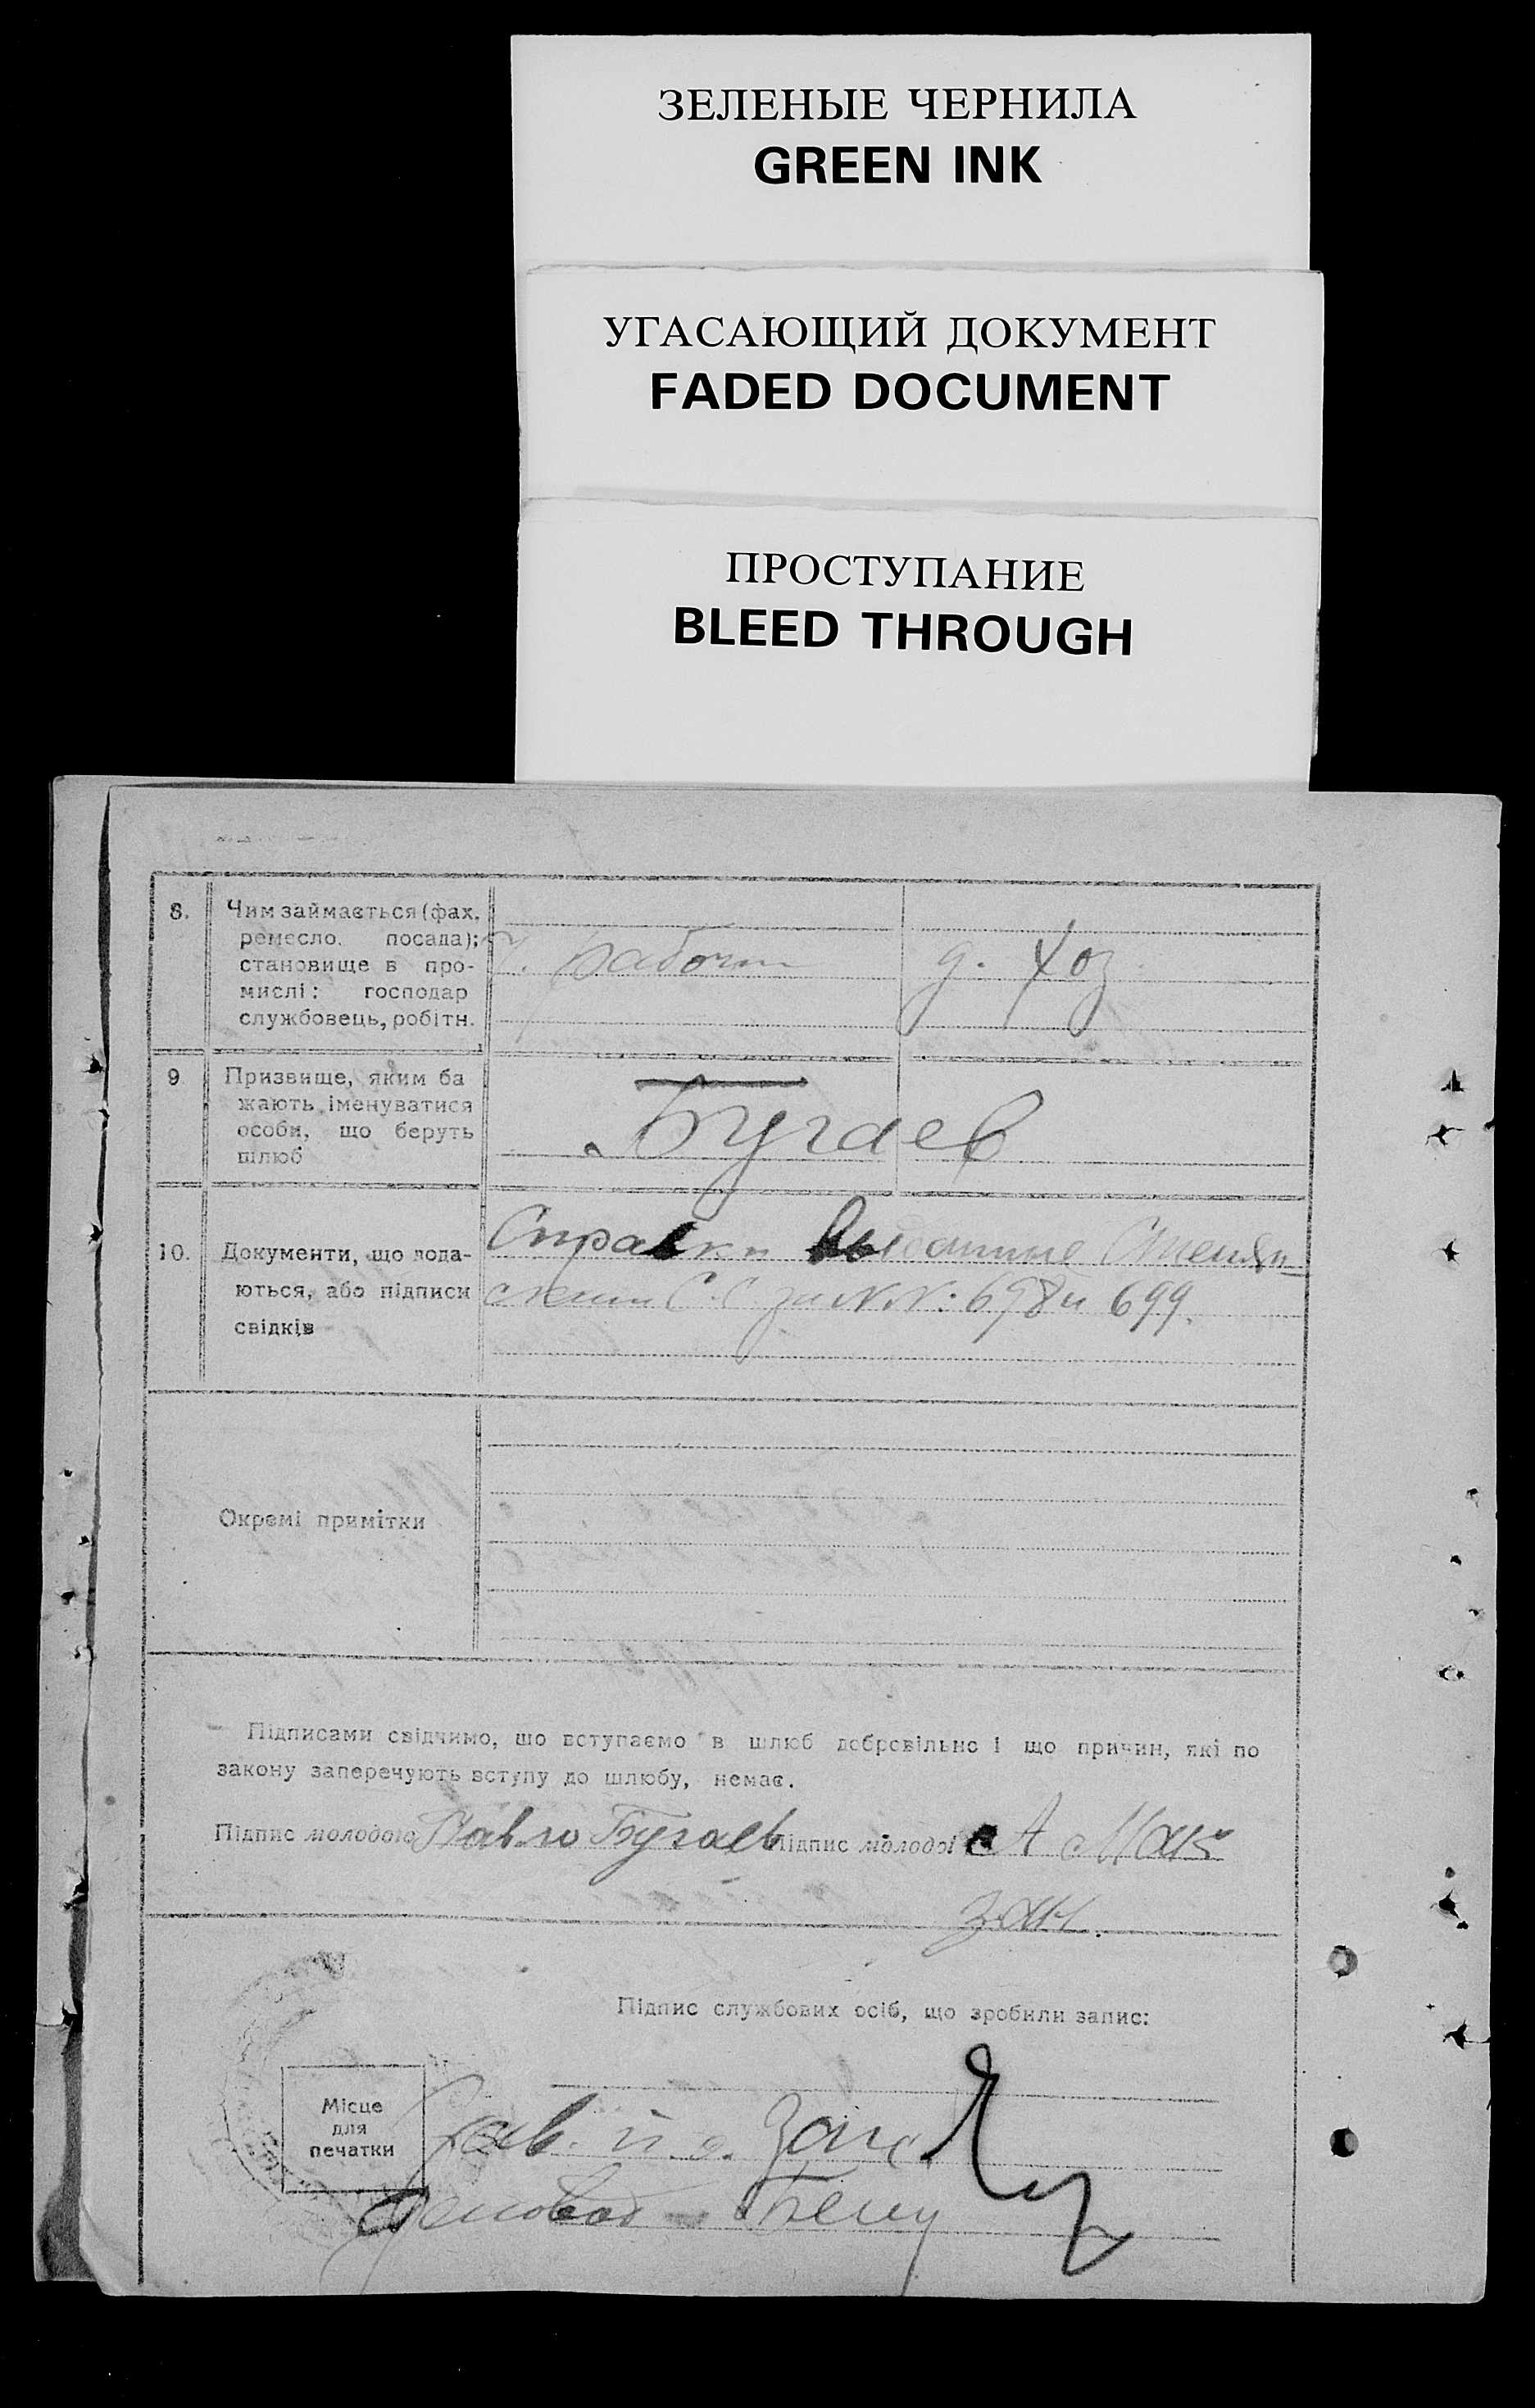 ЗЕЛЕНЫЕ ЧЕРНИЛА
GREEN INK
УГАСАЮЩИЙ ДОКУМЕНТ
FADED DOCUMENT
ПРОСТУПАНИЕ
BLEED THROUGH
8.
Чим займається (фах,
ремесло, посада);
становище в про-
мислі: господар
службовець, робітн.
Рабочи
д. хоз
9
Призвище, яким ба
жають іменуватися
особи, що беруть
шлюб
Бугаев
10.
Документи, що пода-
ються, або підписи
свідків
Справки выданные
С.С за №№: 698 и 699.
Окремі примітки
Підписами свідчимо, що вступаємо в шлюб добровільно і що причин, які по
закону заперечують вступу до шлюбу, немає.
Підпис молодого Павло Бугаев Підпис молодої А Мак
зак.
Підпис службових осіб, що зробили запис:
Місце
для
печатки
Зав. п. о. Загс
Деловод